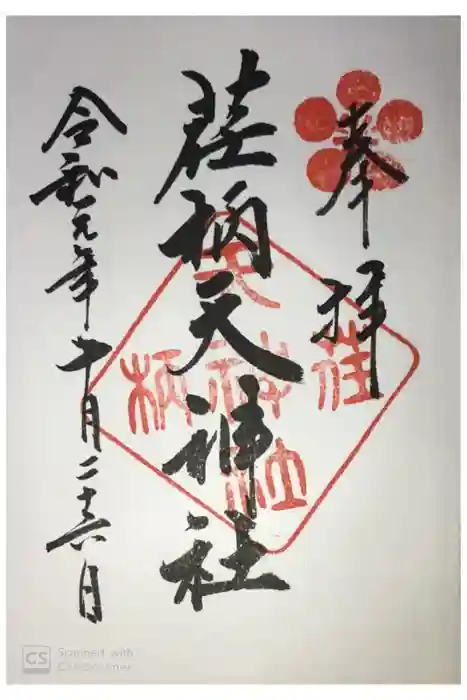 奉拝
荏柄天神社
令和元年十月二十六日
荏柄天神社
CS Scanned with
CamScanner